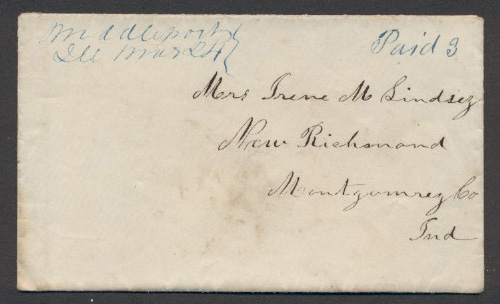 Middleport
Ill Mar 24
Paid 3
Mrs Irene M Lindsey
New Richmond
Montgomrey Co
Ind